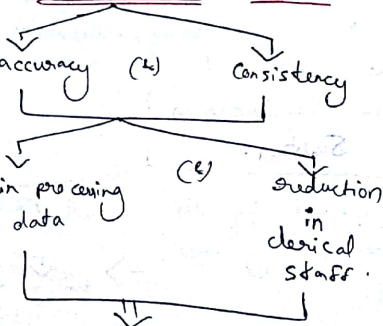 accuracy (&) Consistency
in processing data (&) reduction in clerical staff.